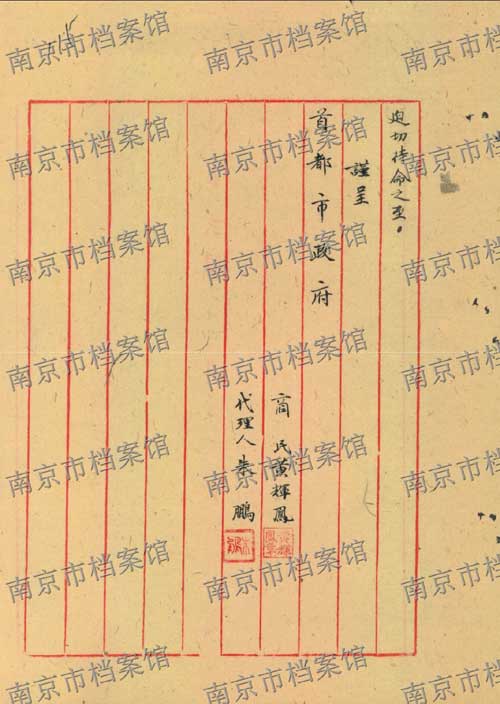 迫切待命之至。
謹呈
首都市政府
商民黃輝鳳
代理人 鵬
南京市档案馆